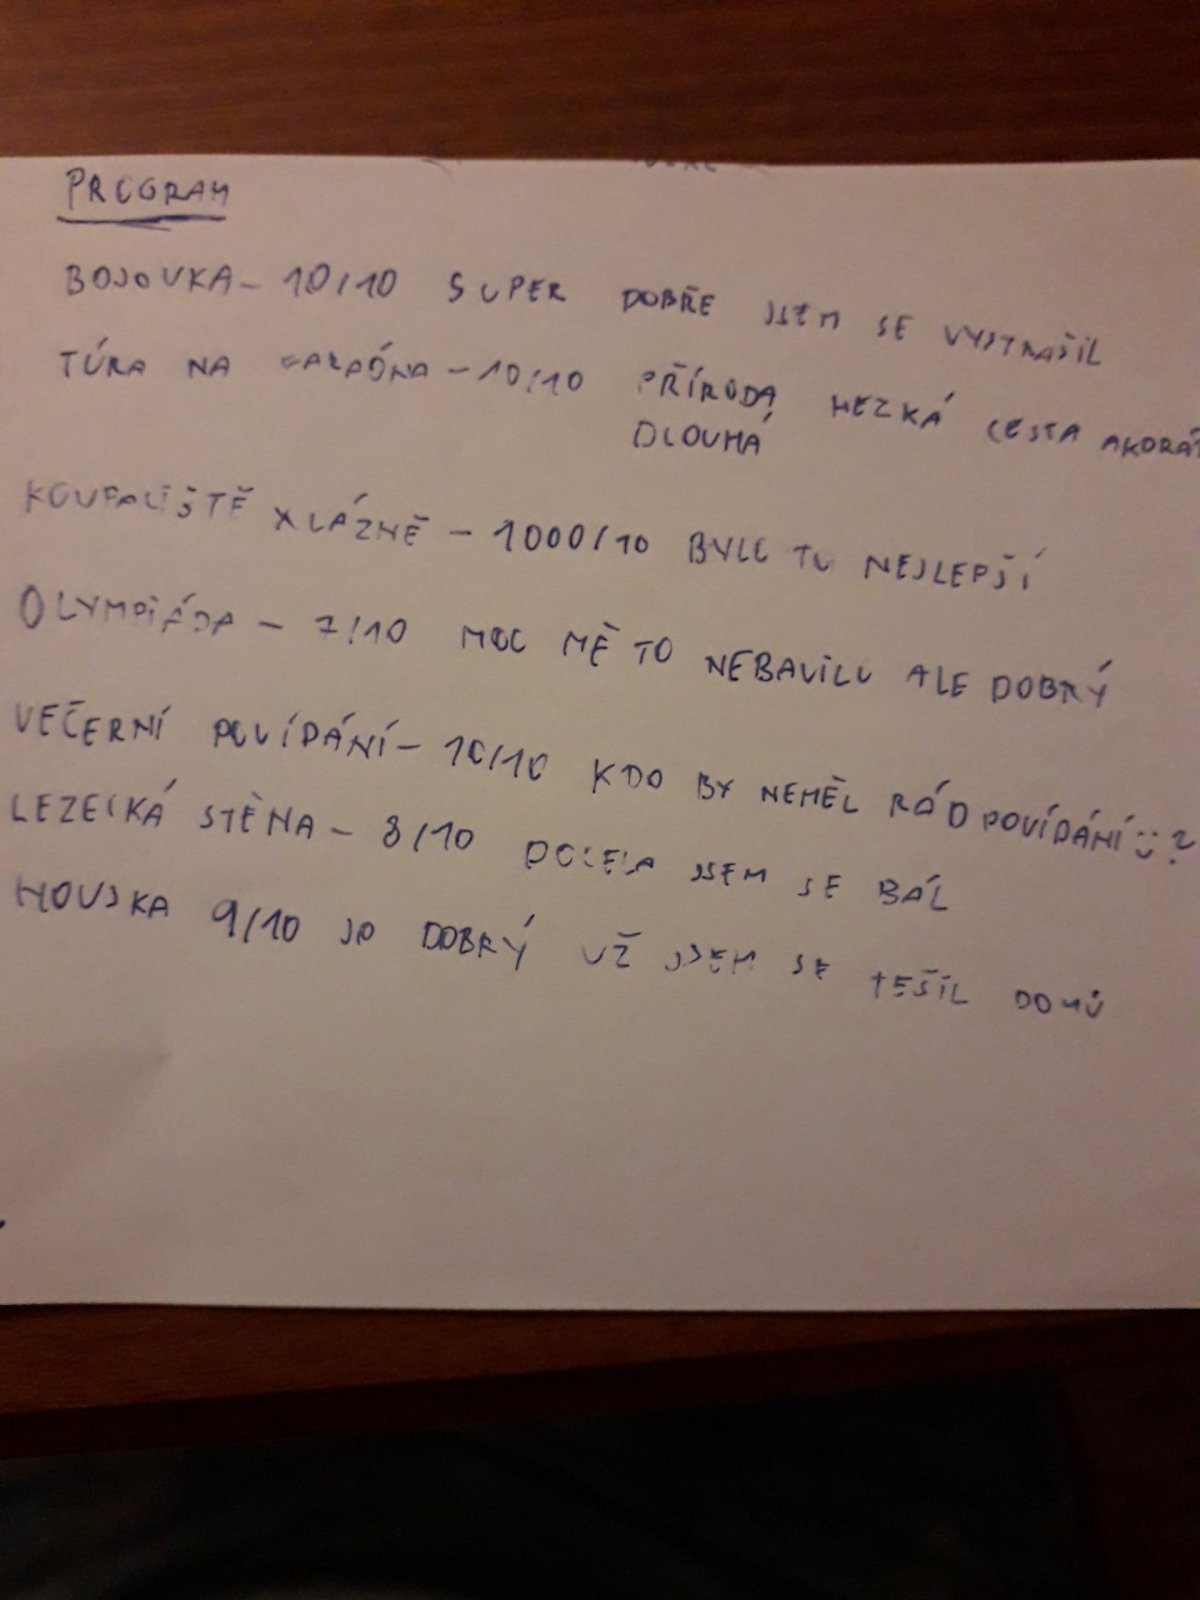 PROGRAM
BOJOVKA - 10/10 SUPER DOBŘE JSEM SE VYSTRAŠIL
TÚRA NA FARAÓNA - 10/10 PŘÍRODA HEZKÁ CESTA AKORÁT
DLOUHÁ
KOUPALIŠTĚ X LÁZNĚ - 1000/10 BYLO TO NEJLEPŠÍ
OLYMPIÁDA - 7/10 MOC MĚ TO NEBAVILO ALE DOBRÝ
VEČERNÍ POVÍDÁNÍ - 10/10 KDO BY NEMĚL RÁD POVÍDÁNÍ :) ?
LEZECKÁ STĚNA - 8/10 DOCELA JSEM SE BÁL
HOUSKA 9/10 JO DOBRÝ UŽ JSEM SE TĚŠIL DOMŮ